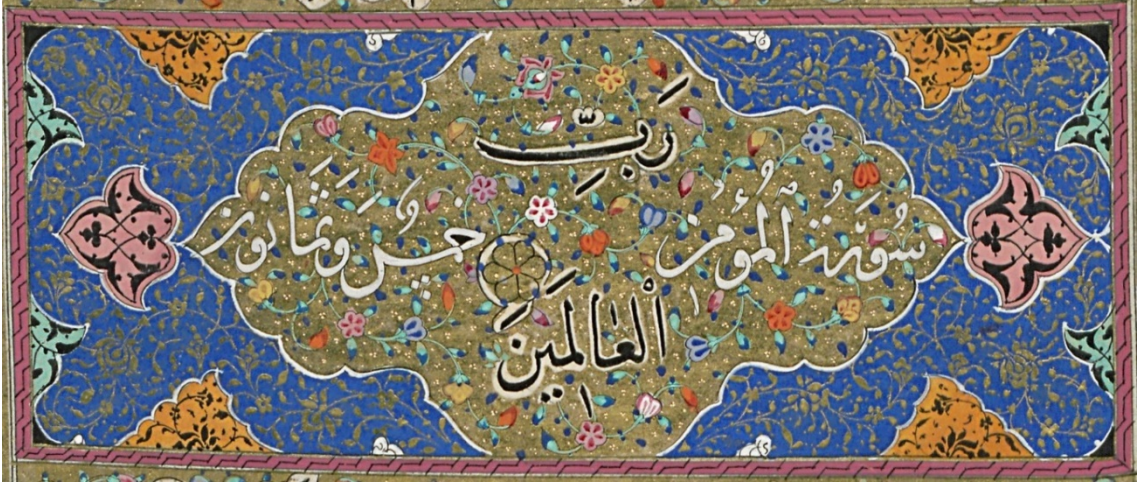 رَبِّ
سُورَةُ الْمُؤْمِن خَمْسٌ وَثَمَانُونَ
الْعَالَمِينَ